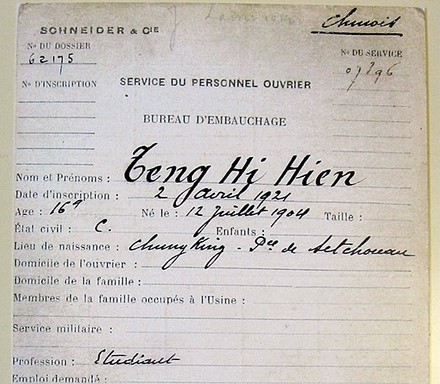 Chinois
SCHNEIDER & CIE
No DU DOSSIER
62175
No DU SERVICE
07396
No D'INSCRIPTION
SERVICE DU PERSONNEL OUVRIER
BUREAU D'EMBAUCHAGE
Nom et Prénoms : Teng Hi Hien
Date d'inscription : 2 avril 1921
Age : 16a Né le : 12 Juillet 1904 Taille :
État civil : C. Enfants :
Lieu de naissance : Chungking - Pce de Setchouan
Domicile de l'ouvrier :
Domicile de la famille :
Membres de la famille occupés à l'Usine :
Service militaire :
Profession : Etudiant
Emploi demandé :